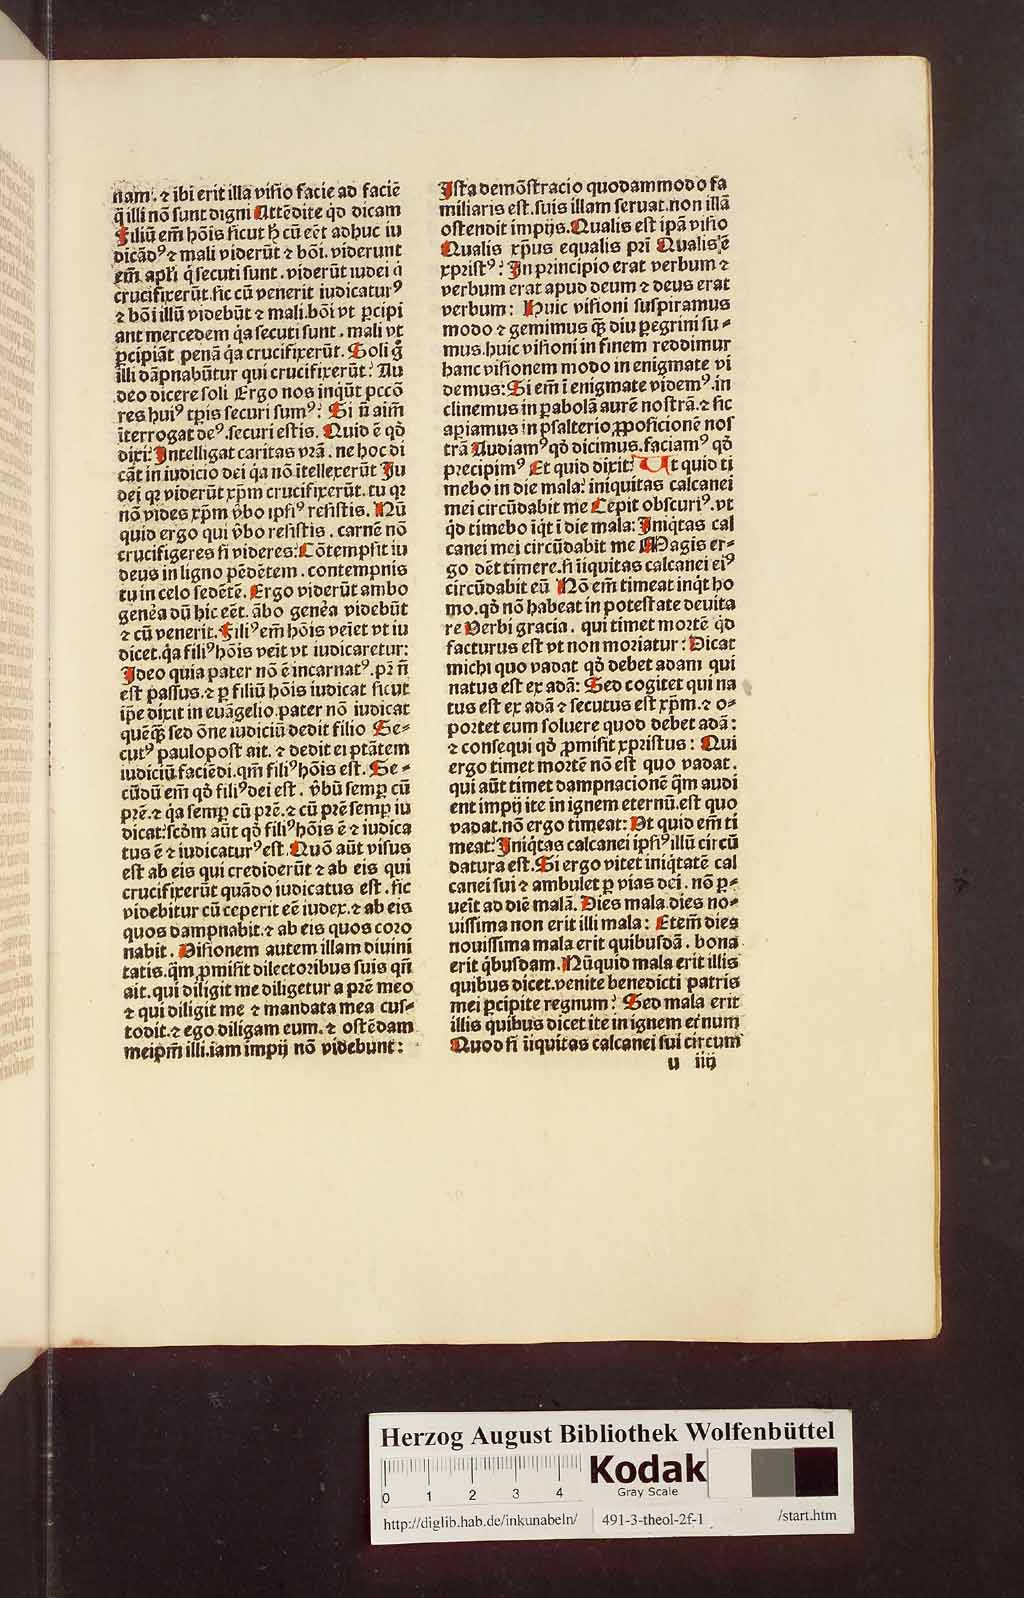 nam. ⁊ ibi erit illa visio facie ad faciē
q̄ illi nō sunt digni Attēdite qd̓ dicam
Filiū em̄ hōis sicut h̓ cū eēt adhuc iu
dicādꝰ ⁊ mali viderūt ⁊ bōi. viderunt
em̄ apl̓i q̓ secuti sunt . viderūt iudei q̓
crucifixerūt. sic cū venerit iudicaturꝰ
⁊ bōi illū videbūt ⁊ mali. bōi vt ꝑcipi
ant mercedem q̓a secuti sunt . mali vt
ꝑcipiāt penā q̓a crucifixerūt. Soli g̊
illi dāpnabūtur qui crucifixerūt: Au
deo dicere soli Ergo nos inqūt pccō
res huiꝰ tꝑis securi sumꝰ: Si n̄ aim̄
īterrogat deꝰ. securi estis. Quid ē qd̓
dixi: Intelligat caritas vr̄a . ne hoc di
cāt in iudicio dei q̓a nō ītellexerūt Ju
dei qꝛ viderūt xp̄m crucifixerūt. tu qꝛ
nō vides xp̄m v̓bo ipsiꝰ resistis. Nū
quid ergo qui v̓bo resistis . carnē nō
crucifigeres si videres: Cōtempsit iu
deus in ligno pēdētem . contempnis
tu in celo sedētē. Ergo viderūt ambo
gen̓a dū hic eēt. ābo gen̓a videbūt
⁊ cū venerit. Filiꝰ em̄ hōis veīet vt iu
dicet. q̓a filiꝰ hōis veīt vt iudicaretur:
Ideo quia pater nō ē incarnatꝰ. pr̄ n̄
est passus. ⁊ ꝑ filiū hōis iudicat sicut
ip̄e dixit in euāgelio. pater nō iudicat
quēqꝫ sed ōne iudiciū dedit filio Se-
cutꝰ paulopost ait. ⁊ dedit ei ptātem
iudiciū faciēdi. qm̄ filiꝰ hōis est. Se-
cūdū em̄ qd̓ filiꝰ dei est . v̓bū semꝑ cū
pr̄e. ⁊ q̓a semꝑ cū pr̄e. ⁊ cū pr̄e semꝑ iu
dicat: scd̓m aūt qd̓ filiꝰ hōis ē ⁊ iudica
tus ē ⁊ iudicaturꝰ est. Quō aūt visus
est ab eis qui crediderūt ⁊ ab eis qui
crucifixerūt quādo iudicatus est . sic
videbitur cū ceperit eē iudex. ⁊ ab eis
quos dampnabit. ⁊ ab eis quos coro
nabit . Visionem autem illam diuini
tatis. q̄m ꝓmisit dilectoribus suis qn̄
ait. qui diligit me diligetur a pr̄e meo
⁊ qui diligit me ⁊ mandata mea cus-
todit. ⁊ ego diligam eum. ⁊ ostēdam
meipm̄ illi. iam impij nō videbunt:
Ista demōstracio quodammodo fa
miliaris est. suis illam seruat. non illā
ostendit impijs. Qualis est ip̄a visio
Qualis xp̄us equalis pr̄i Qualis ē
xpristꝰ: In principio erat verbum ⁊
verbum erat apud deum ⁊ deus erat
verbum: Huic visioni suspiramus
modo ⁊ gemimus qꝫ diu ꝑegrini su-
mus. huic visioni in finem reddimur
hanc visionem modo in enigmate vi
demus: Si em̄ ī enigmate videmꝰ. in
clinemus in ꝑabolā aurē nostrā. ⁊ sic
aꝑiamus in psalterio ꝓposicionē nos
trā Audiamꝰ qd̓ dicimus. faciamꝰ qd̓
precipimꝰ Et quid dixit: Ut quid ti
mebo in die mala: iniquitas calcanei
mei circūdabit me Cepit obscuriꝰ. vt
qd̓ timebo īq̓t ī die mala: Iniq̓tas cal
canei mei circūdabit me Magis er-
go dēt timere. si īiquitas calcanei eiꝰ
circūdabit eū Nō em̄ timeat inq̓t ho
mo. qd̓ nō habeat in potestate deuita
re Verbi gracia . qui timet mortē qd̓
facturus est vt non moriatur: Dicat
michi quo vadat qd̓ debet adam qui
natus est ex adā: Sed cogitet qui na
tus est ex adā ⁊ secutus est xp̄m. ⁊ o-
portet eum soluere quod debet adā:
⁊ consequi qd̓ ꝓmisit xpristus: Qui
ergo timet mortē nō est quo vadat .
qui aūt timet dampnacionē q̄m audi
ent impij ite in ignem eternū. est quo
vadat. nō ergo timeat: Vt quid em̄ ti
meat: Iniq̓tas calcanei ipsiꝰ illū circū
datura est. Si ergo vitet iniq̓tatē cal
canei sui ⁊ ambulet ꝑ vias dei . nō ꝑ-
ueīt ad diē malā. Dies mala. dies no-
uissima non erit illi mala: Etem̄ dies
nouissima mala erit quibusdā . bona
erit q̓busdam. Nūquid mala erit illis
quibus dicet. venite benedicti patris
mei ꝑcipite regnum: Sed mala erit
illis quibus dicet ite in ignem et̓num
Quod si īiquitas calcanei sui circum
u iiij
Herzog August Bibliothek Wolfenbüttel
0 1 2 3 4
Kodak
Gray Scale
http://diglib.hab.de/inkunabeln/ 491-3-theol-2f-1 /start.htm